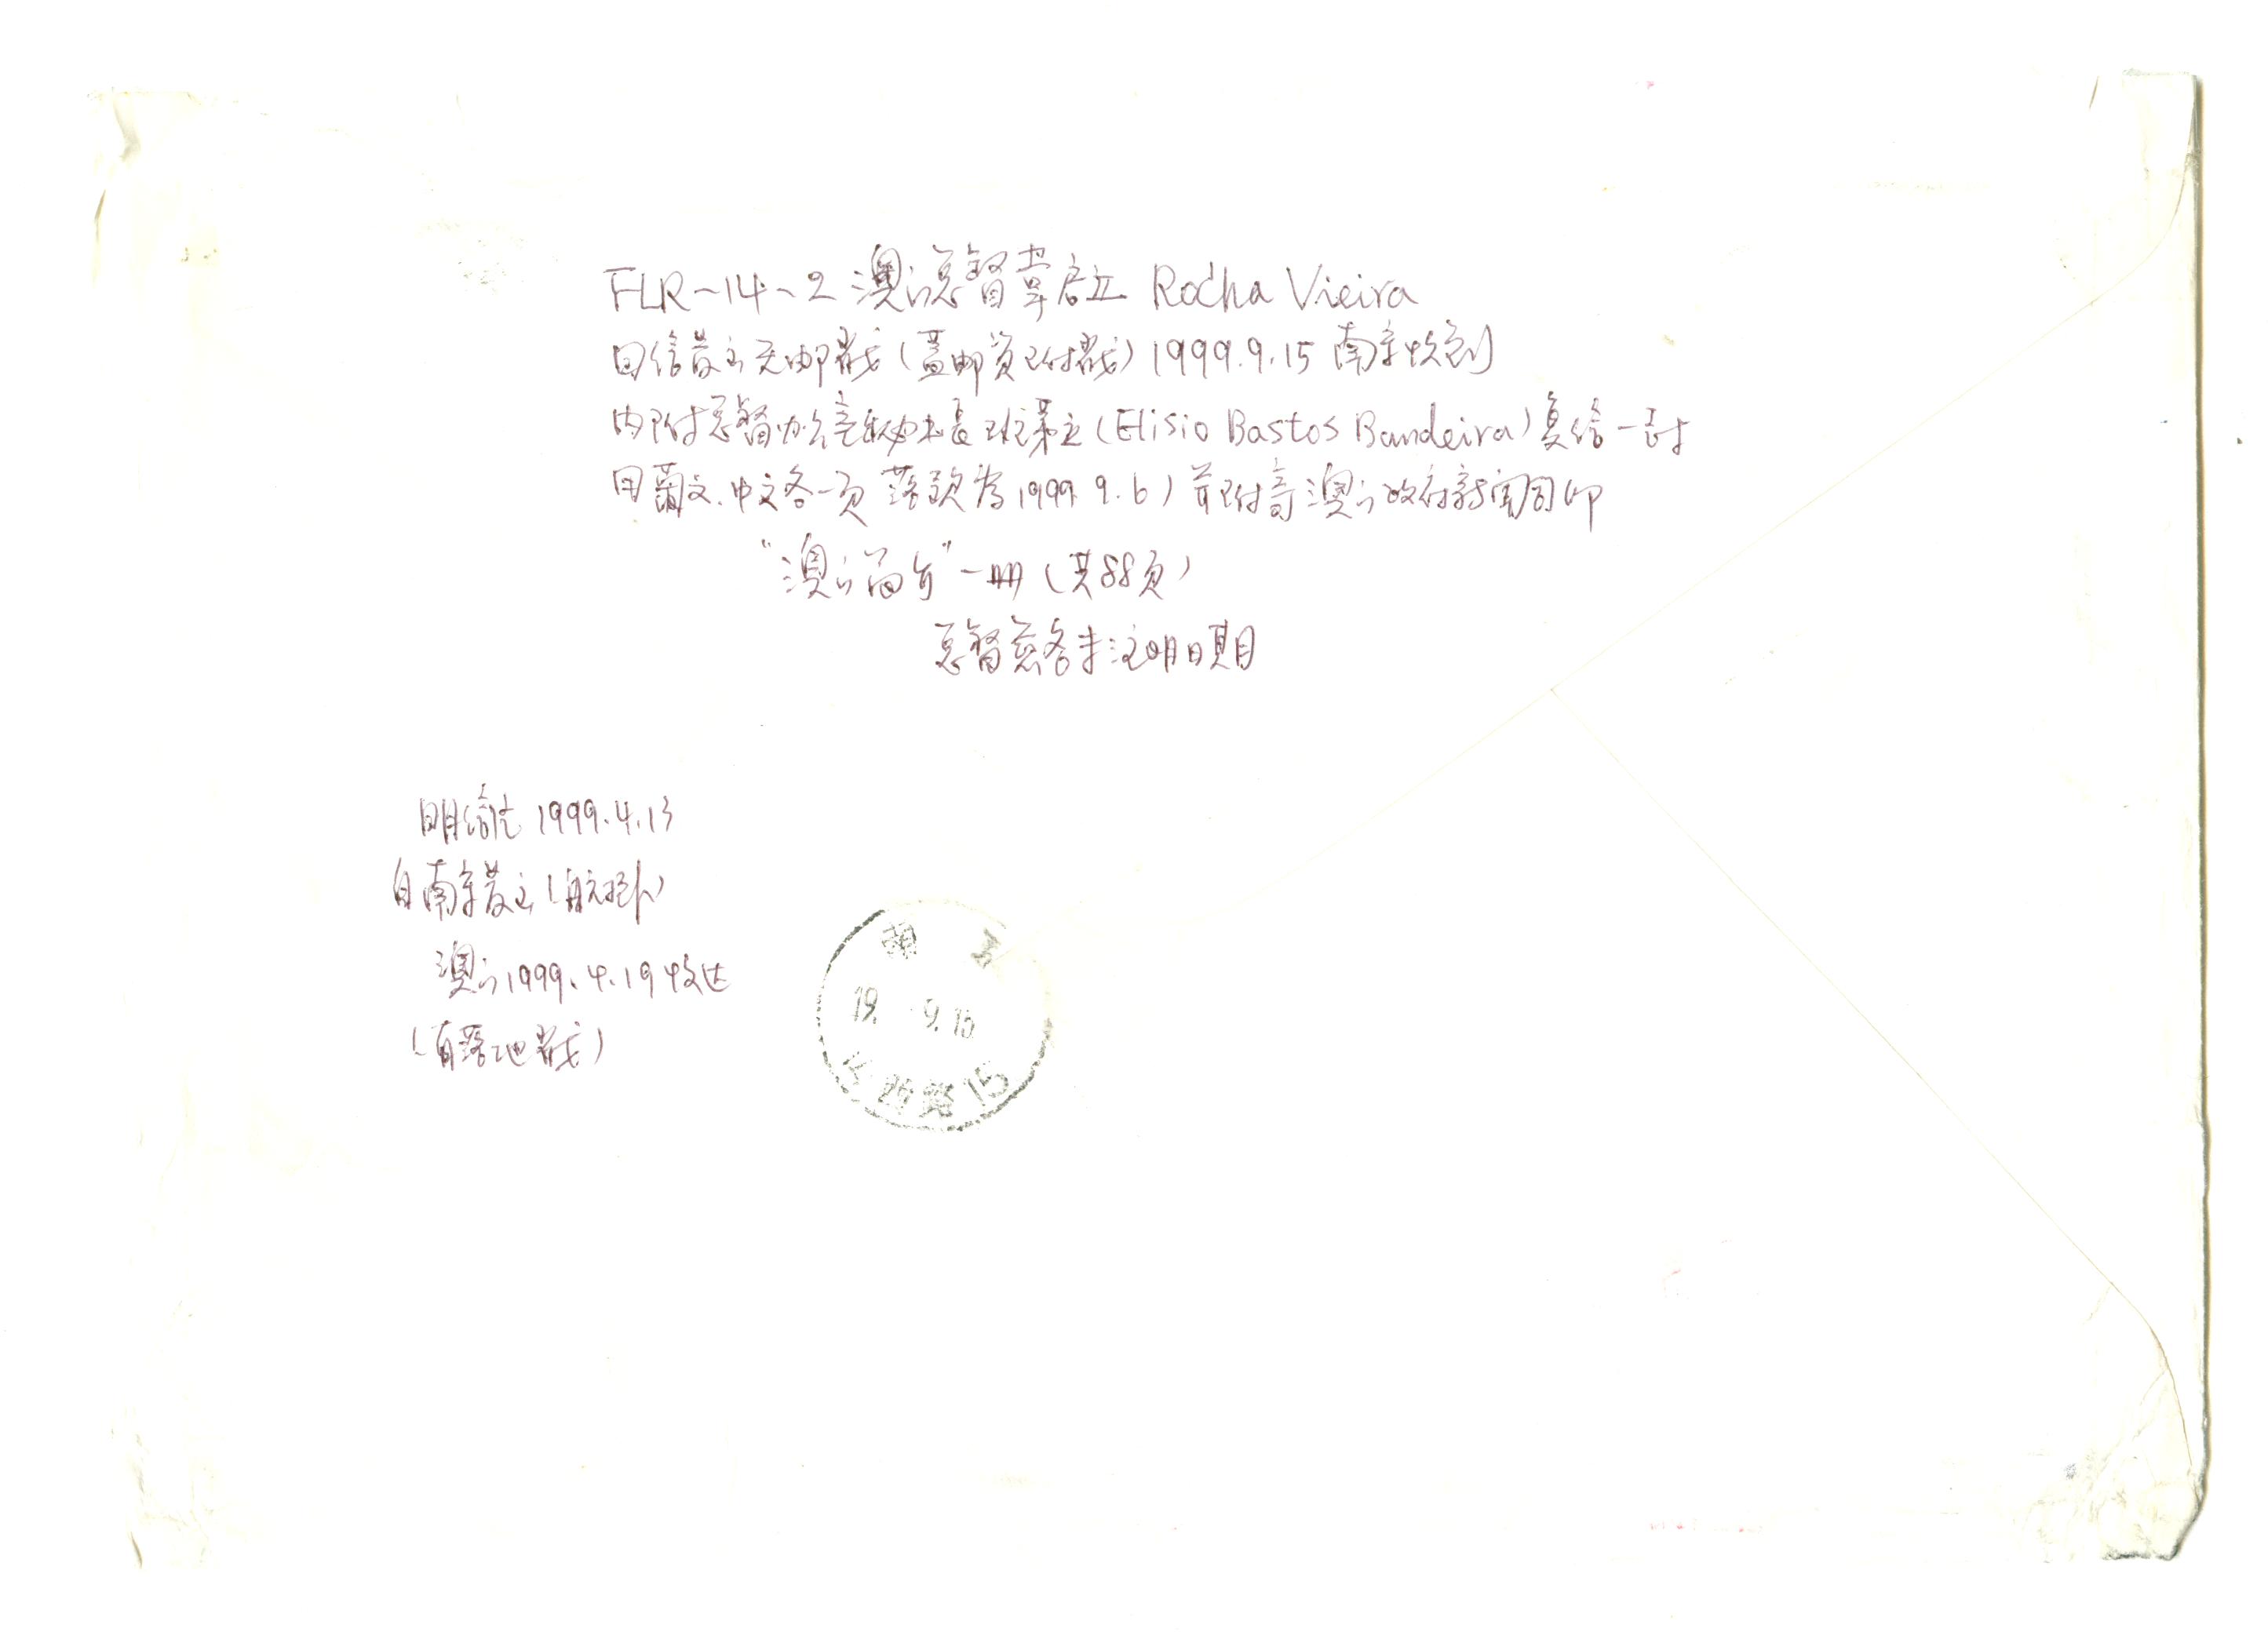 FLR-14-2 澳门总督韋启立 Rocha Vieira
回信发出无邮戳(盖邮资已付戳) 1999.9.15 南宁收到
内附总督办公室秘书长班第立(Elisio Bastos Bandeira)复信一封
用葡文、中文各一页 落款为1999.9.6) 并附寄澳门政府新闻司印
"澳门简介"一册(共88页)
总督签名未注明日期
明信片 1999.4.13
自南宁发出(航挂)
澳门1999.4.19收达
(有落地戳)
南 宁
19 . 9.15
西路15